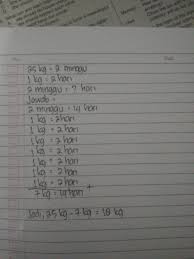 25 kg = 2 minggu
1 kg = 2 hari
2 minggu = ? hari
Jawab =
2 minggu = 14 hari
1 kg = 2 hari
1 kg = 2 hari
1 kg = 2 hari
1 kg = 2 hari
1 kg = 2 hari
1 kg = 2 hari
1 kg = 2 hari +
7 kg = 14 hari
Jadi, 25 kg - 7 kg = 18 kg